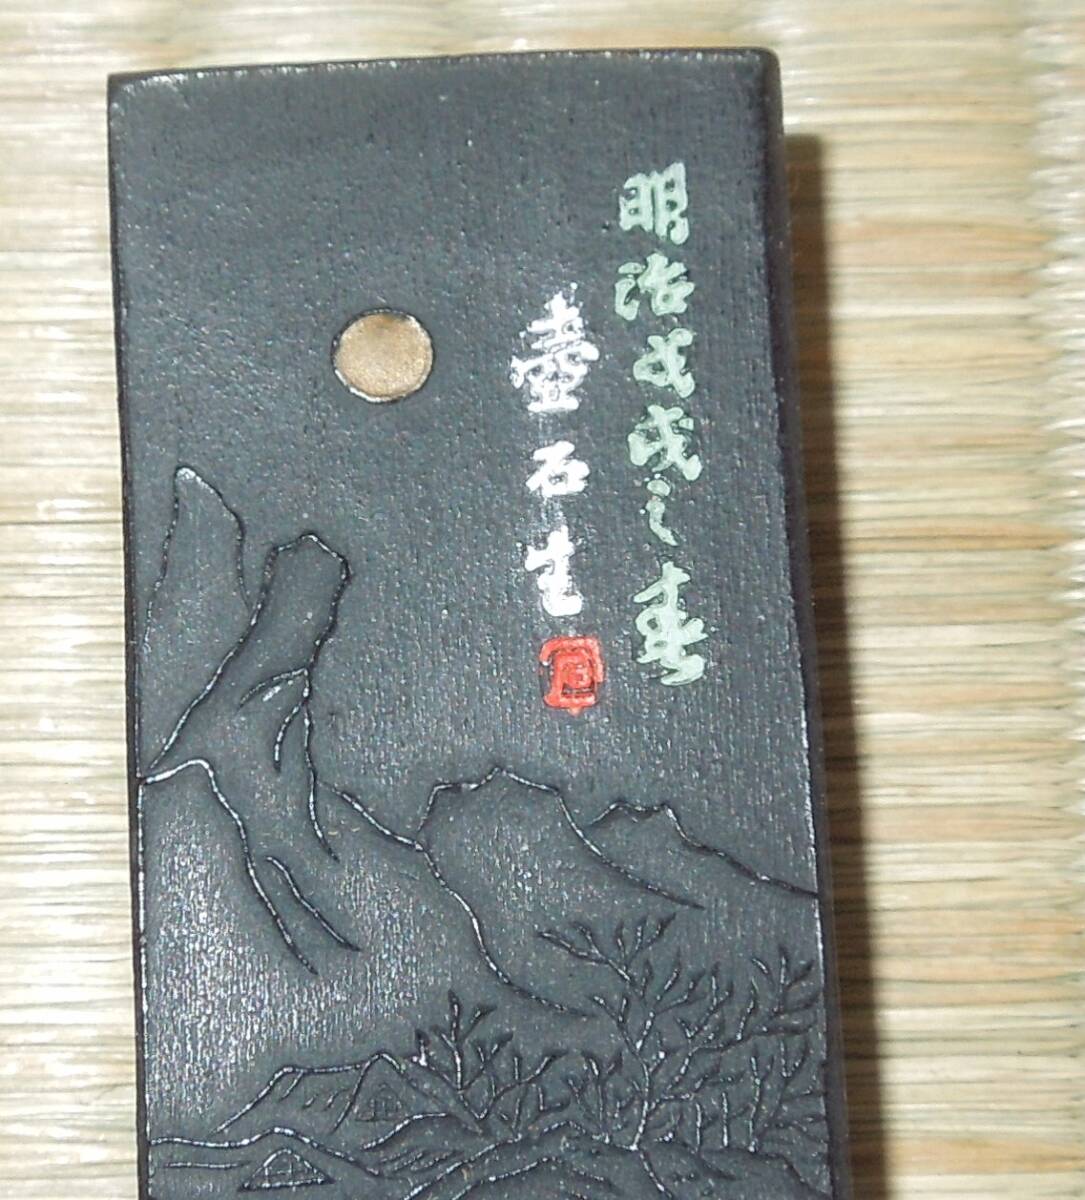 明治戊戌之春
壺石生